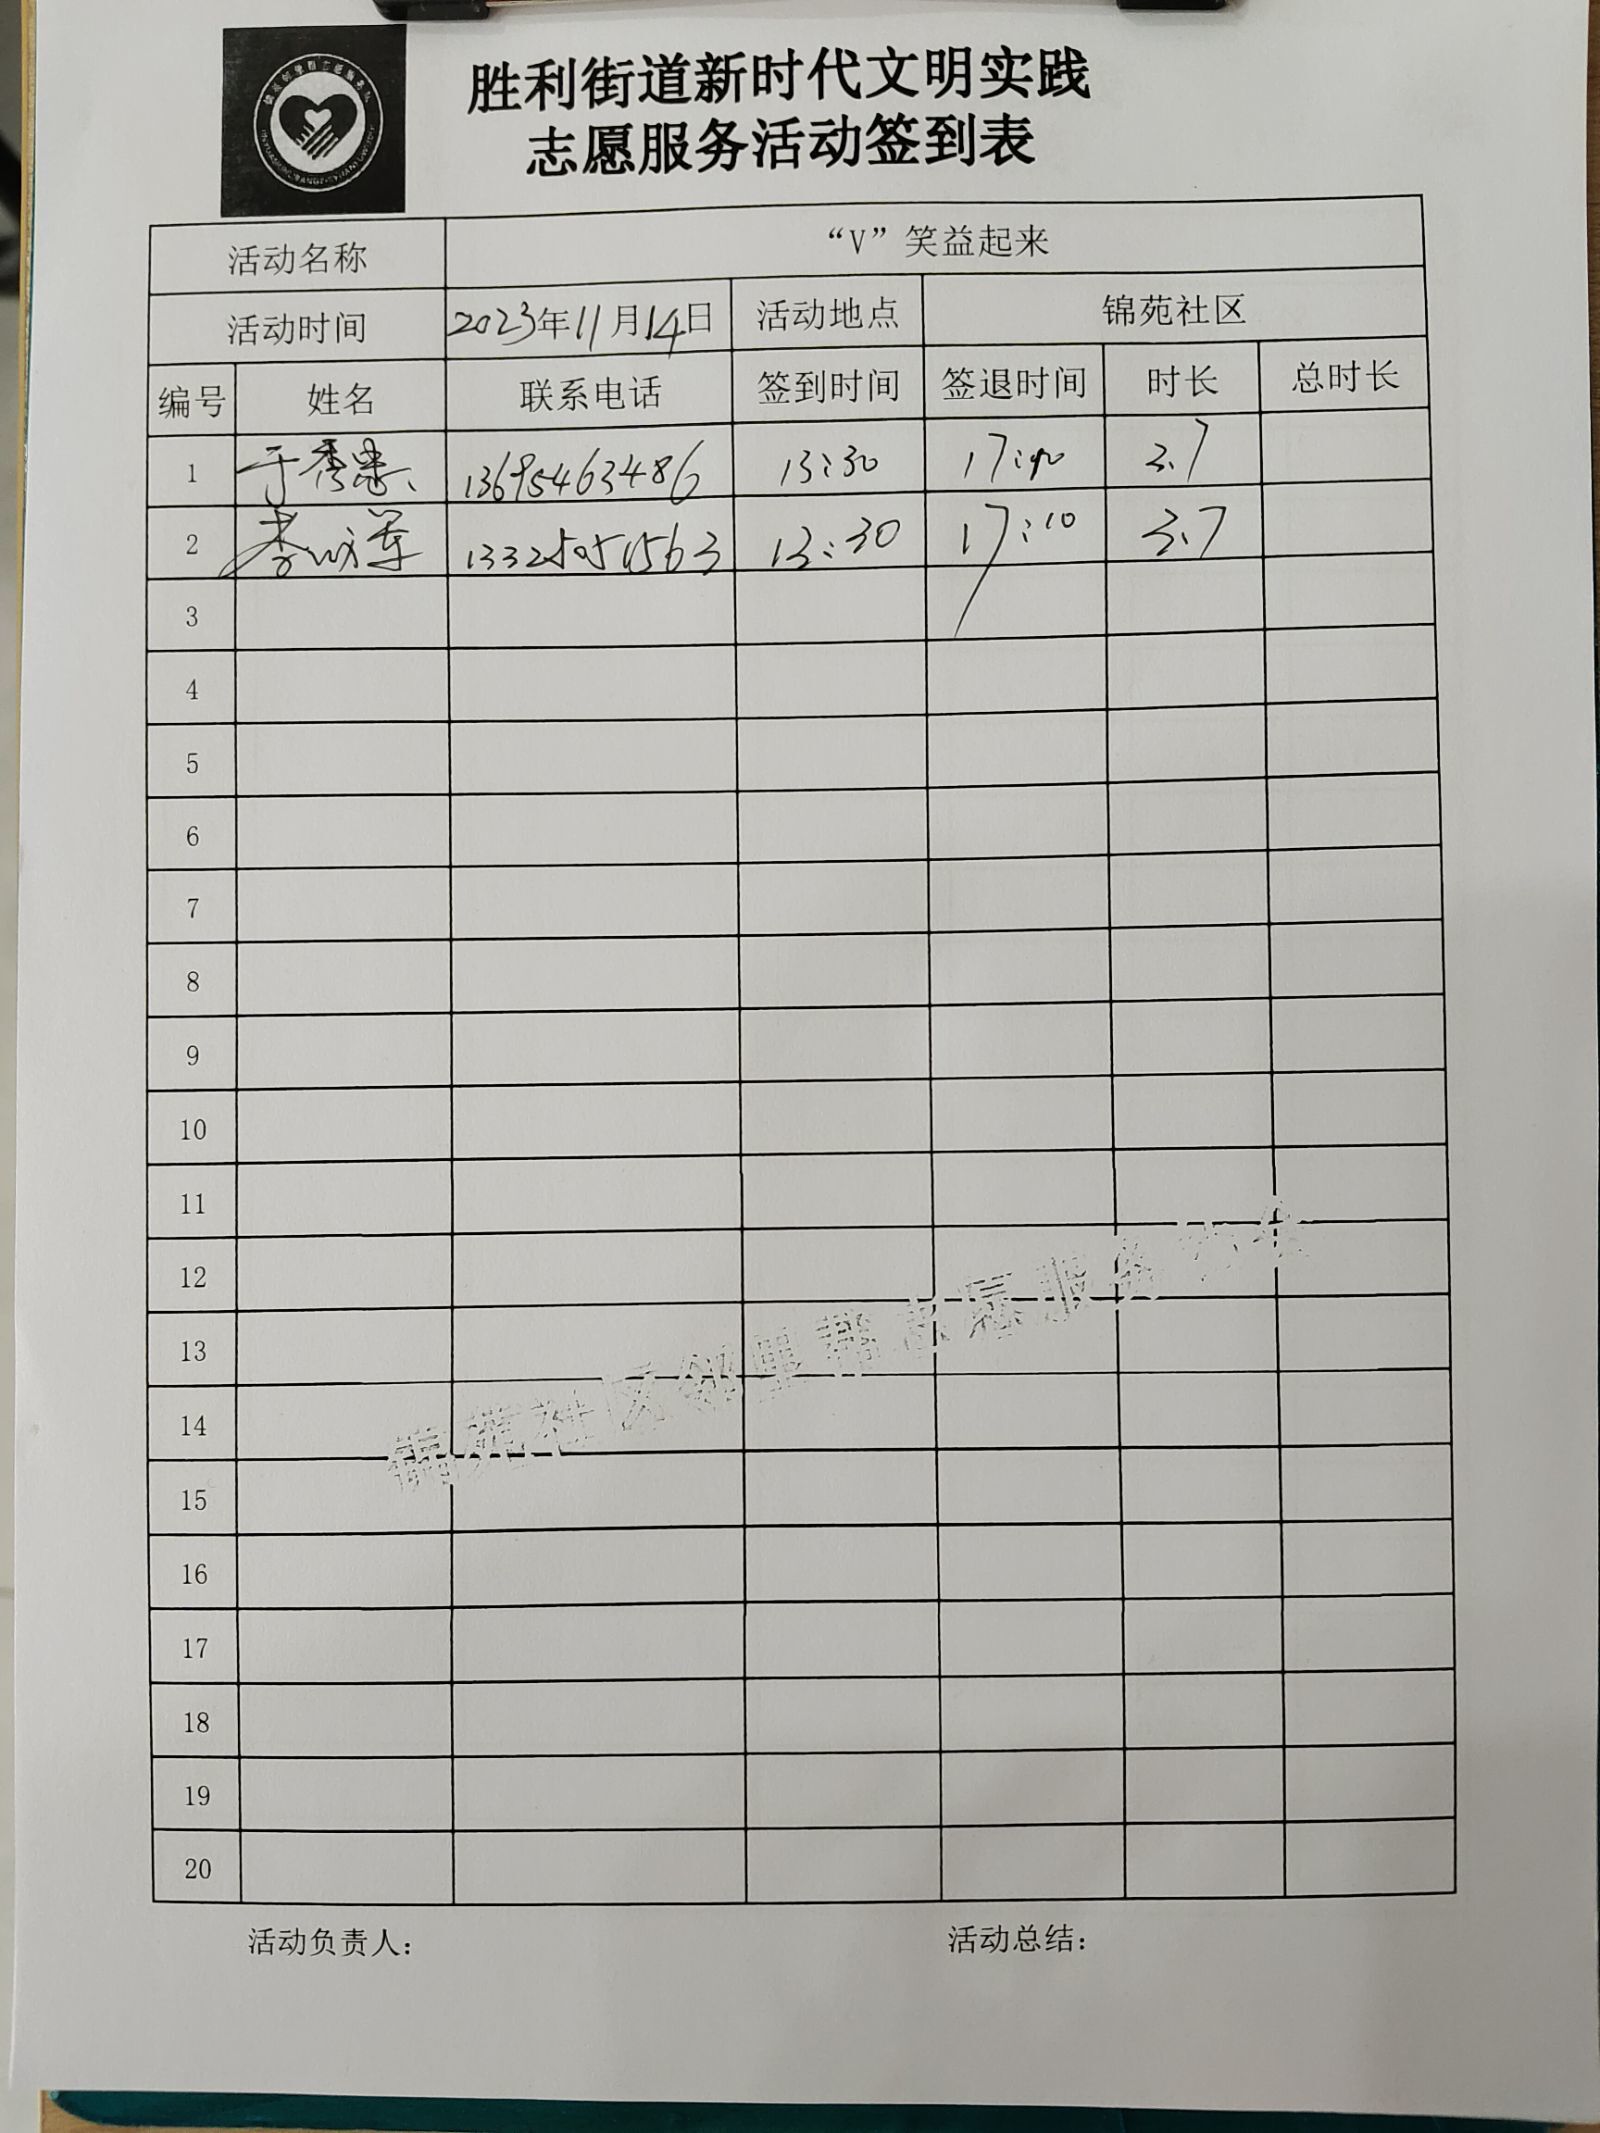 胜利街道新时代文明实践
志愿服务活动签到表
活动名称 “V”笑益起来
活动时间 2023年11月14日 活动地点 锦苑社区
编号 姓名 联系电话 签到时间 签退时间 时长 总时长
1 于秀忠 13695463486 13:30 17:10 3.7
2 李 军 13:30 17:10 3.7
3
4
5
6
7
8
9
10
11
12
13
14
15
16
17
18
19
20
锦苑社区邻里帮志愿服务协会
活动负责人: 活动总结: